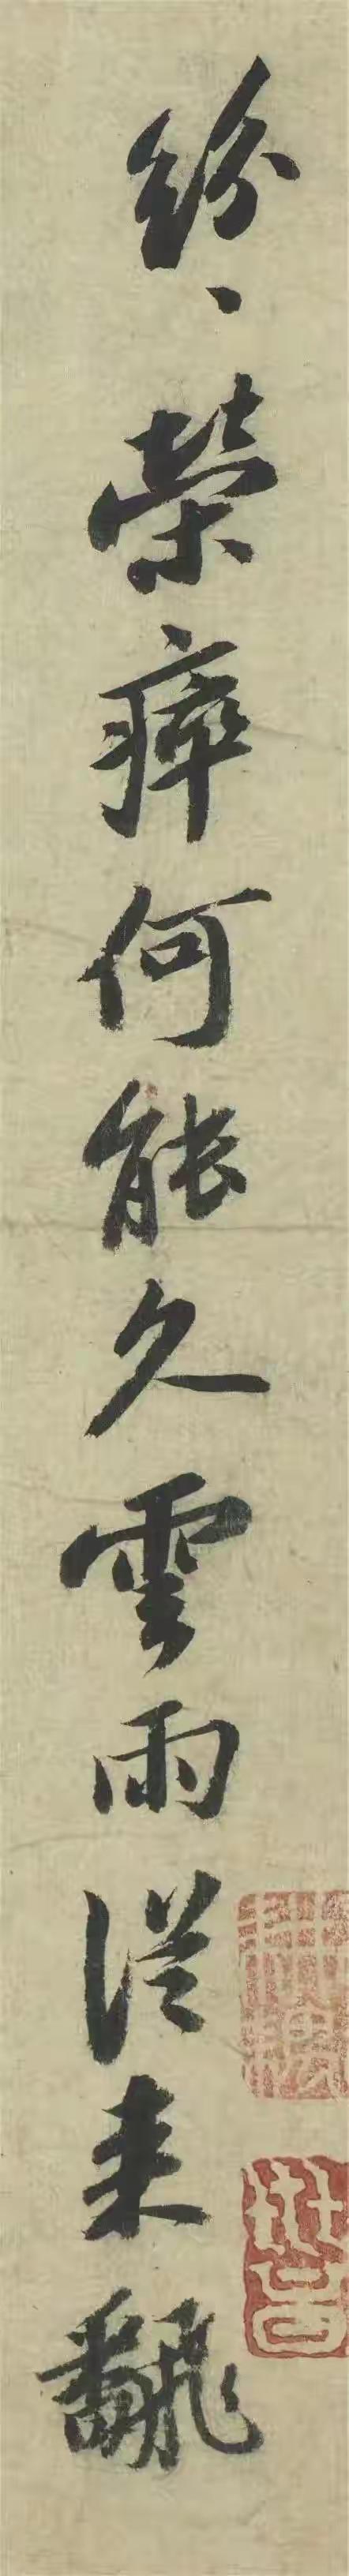 紛、榮瘁何能久雲雨從来飜